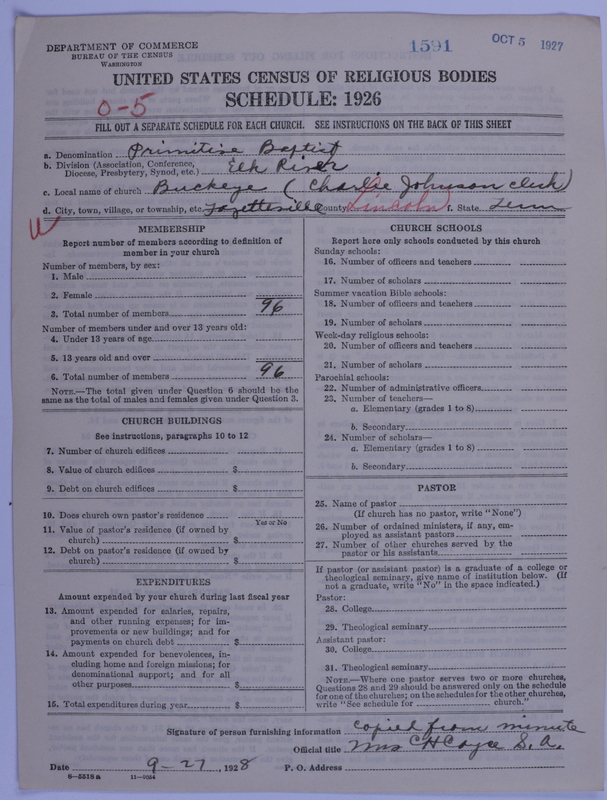 DEPARTMENT OF COMMERCE
BUREAU OF THE CENSUS
WASHINGTON
1591
OCT 5 1927
UNITED STATES CENSUS OF RELIGIOUS BODIES
SCHEDULE: 1926
0-5
FILL OUT A SEPARATE SCHEDULE FOR EACH CHURCH. SEE INSTRUCTIONS ON THE BACK OF THIS SHEET
a. Denomination Primitive Baptist
b. Division (Association, Conference, Diocese, Presbytery, Synod, etc.) Elk River
c. Local name of church Buckeye (Charlie Johnson clerk)
d. City, town, village, or township, etc. Fayetteville County Lincoln f. State Tenn
W
MEMBERSHIP
Report number of members according to definition of
member in your church
Number of members, by sex:
1. Male
2. Female
3. Total number of members 96
Number of members under and over 13 years old:
4. Under 13 years of age
5. 13 years old and over
6. Total number of members 96
NOTE.—The total given under Question 6 should be the
same as the total of males and females given under Question 3.
CHURCH BUILDINGS
See instructions, paragraphs 10 to 12
7. Number of church edifices
8. Value of church edifices $
9. Debt on church edifices $
10. Does church own pastor's residence
Yes or No
11. Value of pastor's residence (if owned by
church) $
12. Debt on pastor's residence (if owned by
church) $
EXPENDITURES
Amount expended by your church during last fiscal year
13. Amount expended for salaries, repairs,
and other running expenses; for im-
provements or new buildings; and for
payments on church debt $
14. Amount expended for benevolences, in-
cluding home and foreign missions; for
denominational support; and for all
other purposes $
15. Total expenditures during year $
CHURCH SCHOOLS
Report here only schools conducted by this church
Sunday schools:
16. Number of officers and teachers
17. Number of scholars
Summer vacation Bible schools:
18. Number of officers and teachers
19. Number of scholars
Week-day religious schools:
20. Number of officers and teachers
21. Number of scholars
Parochial schools:
22. Number of administrative officers
23. Number of teachers—
a. Elementary (grades 1 to 8)
b. Secondary
24. Number of scholars—
a. Elementary (grades 1 to 8)
b. Secondary
PASTOR
25. Name of pastor
(If church has no pastor, write "None")
26. Number of ordained ministers, if any, em-
ployed as assistant pastors
27. Number of other churches served by the
pastor or his assistants
If pastor (or assistant pastor) is a graduate of a college or
theological seminary, give name of institution below. (If
not a graduate, write "No" in the space indicated.)
Pastor:
28. College
29. Theological seminary
Assistant pastor:
30. College
31. Theological seminary
NOTE.—Where one pastor serves two or more churches,
Questions 28 and 29 should be answered only on the schedule
for one of the churches; on the schedules for the other churches,
write "See schedule for church."
Signature of person furnishing information Copied from minute
Official title Mrs C H Cayce S. A.
Date 9-27, 1928 P. O. Address
8-5518a 11-9054